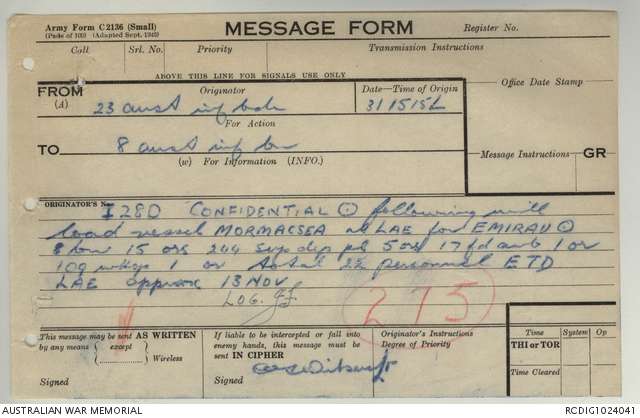 Army Form C2136 (Small)
(Pads of 100) (Adapted Sept. 1942)
MESSAGE FORM
Register No.
Call Srl. No. Priority Transmission Instructions
ABOVE THIS LINE FOR SIGNALS USE ONLY
FROM
(A)
Originator
Date—Time of Origin
Office Date Stamp
23 aust inf bde
311515L
For Action
TO
8 aust inf bn
(w) For Information (INFO.)
Message Instructions
GR
ORIGINATOR'S No.
I280 CONFIDENTIAL ⊙ following will
load vessel MORMACSEA at LAE for EMIRAU ⊙
8 bn 15 ors 244 sup dep pl 5 ors 17 fd amb 1 or
109 1 or total 22 personnel ETD
LAE approx 13 NOV
LOG.
275
This message may be sent AS WRITTEN
by any means except Wireless
Signed
If liable to be intercepted or fall into
enemy hands, this message must be
sent IN CIPHER
Signed
Originator's Instructions
Degree of Priority
Time System Op
THI or TOR
Time Cleared
AUSTRALIAN WAR MEMORIAL
RCDIG1024041